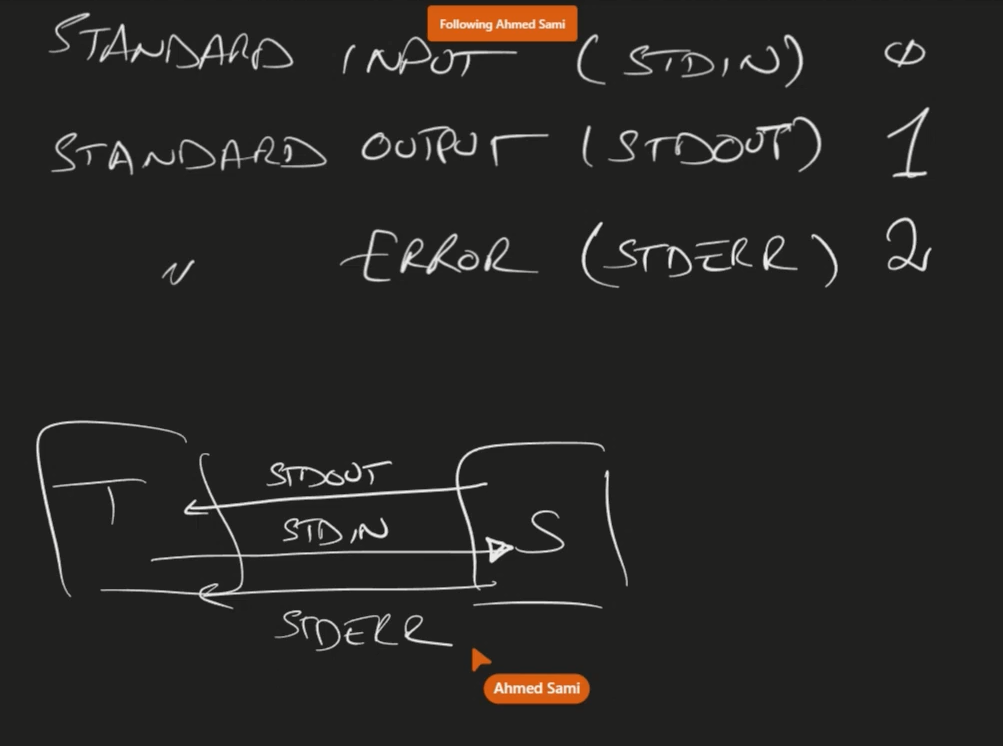 Following Ahmed Sami
STANDARD INPUT (STDIN) 0
STANDARD OUTPUT (STDOUT) 1
" ERROR (STDERR) 2
STDOUT
T
STDIN
S
STDERR
Ahmed Sami